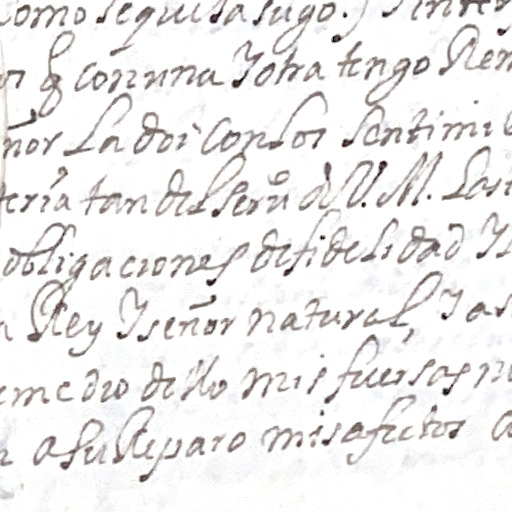 como se quita sugo.)
q̃ con una Jotra tengo Rem
ñor La doi con Los sentimi
teria tan del seru.º de V. M. Las
obligaciones de fidelidad J
Rey J señor natural, J as
emedio dello mis fuersas n
a su Reparo mis afectos a